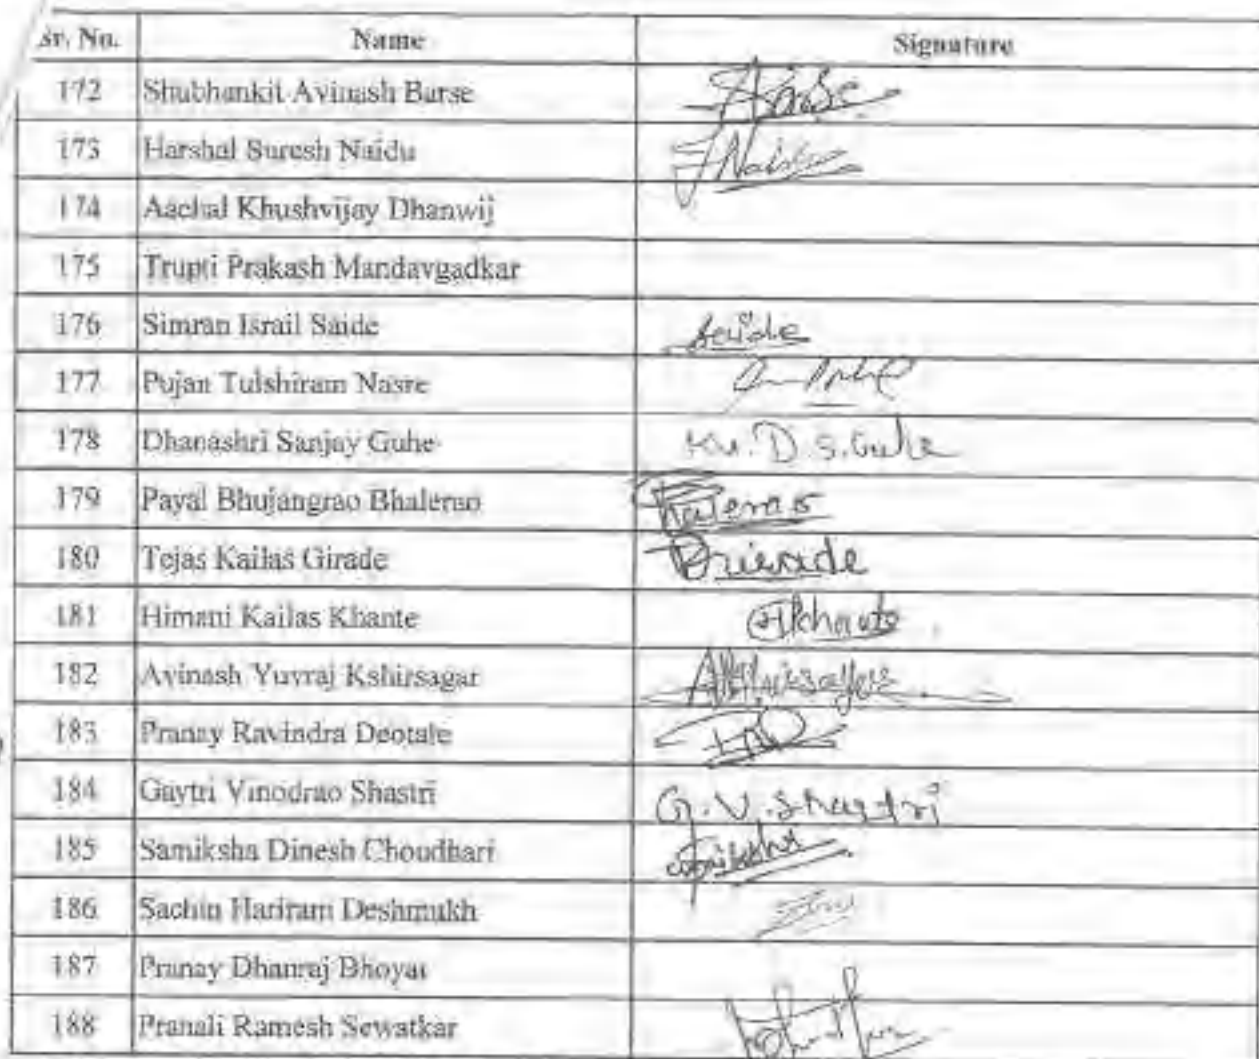 Sr. No. Name Signature
172 Shubhankit Avinash Barse
173 Harshal Suresh Naidu Naidu
174 Aachal Khushvijay Dhanwij
175 Trupti Prakash Mandavgadkar
176 Simran Israil Saide Saide
177 Pujan Tulshiram Nasre
178 Dhanashri Sanjay Guhe Ku. D. S. Guhe
179 Payal Bhujangrao Bhalerao
180 Tejas Kailas Girade
181 Himani Kailas Khante
182 Avinash Yuvraj Kshirsagar
183 Pranay Ravindra Deotale
184 Gaytri Vinodrao Shastri G. V. Shastri
185 Samiksha Dinesh Choudhari
186 Sachin Hariram Deshmukh
187 Pranay Dhanraj Bhoyar
188 Pranali Ramesh Sewatkar